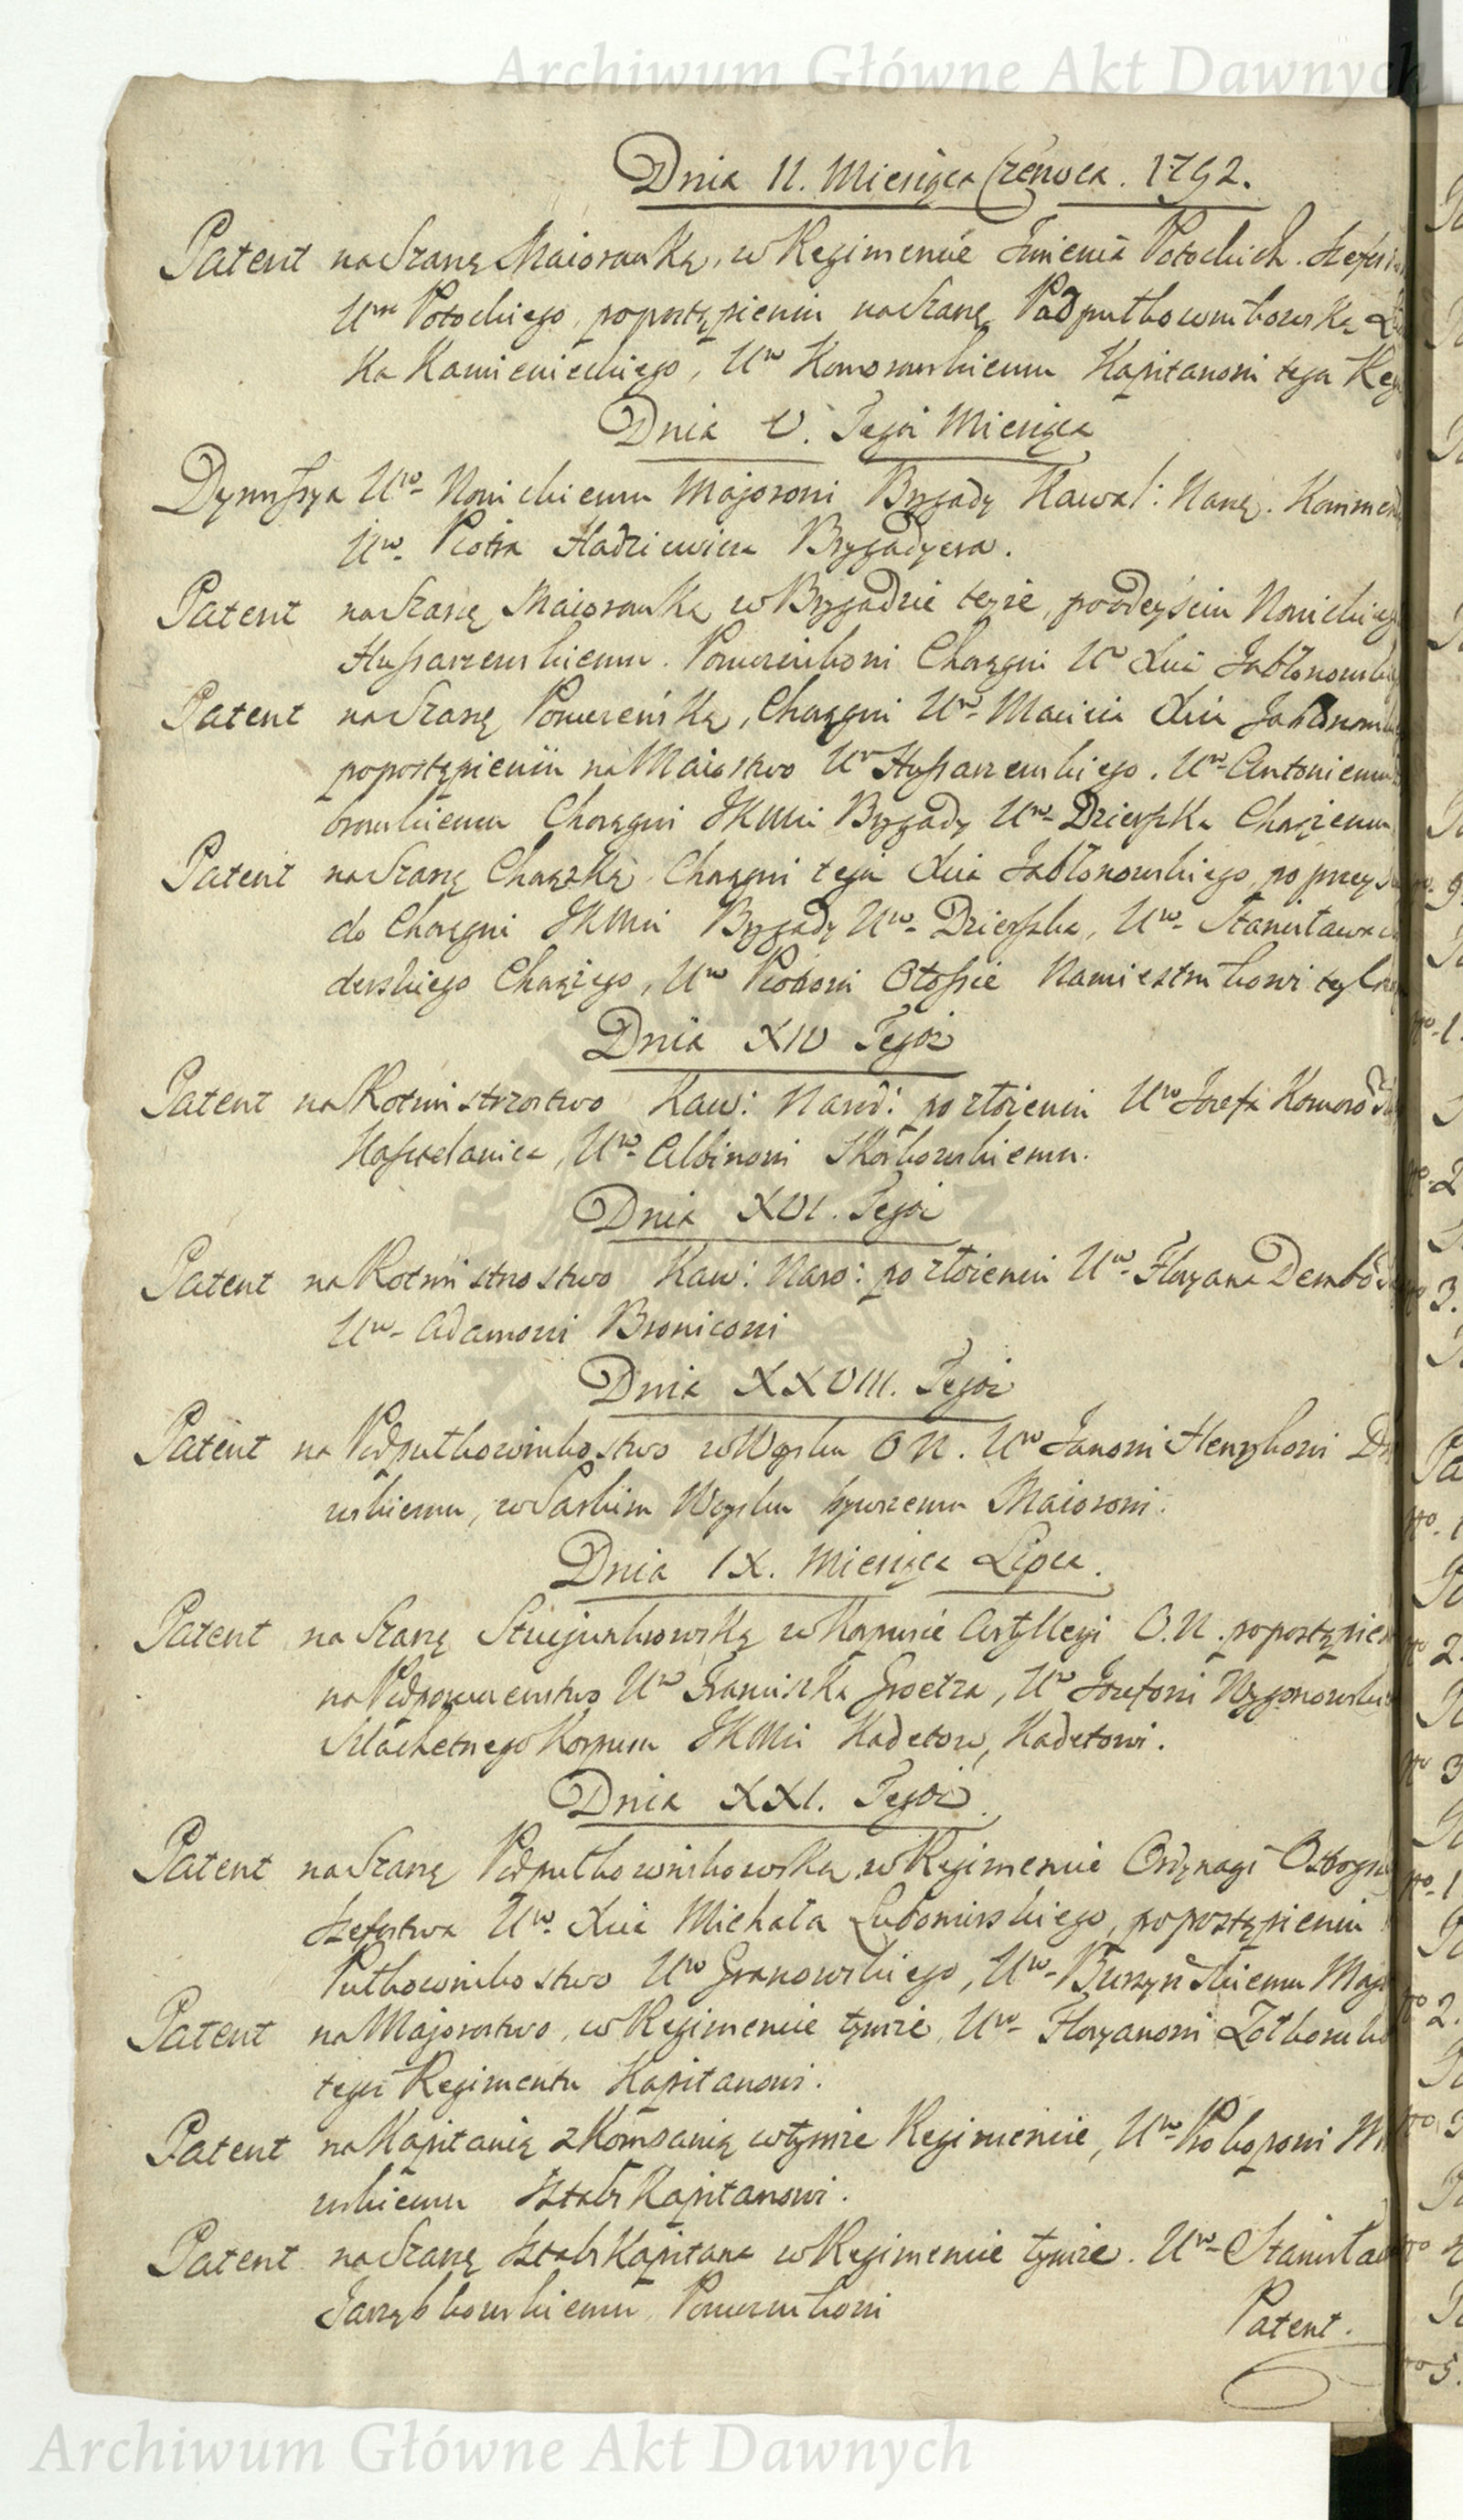 Archiwum Główne Akt Dawnych
Dnia II. Miesiąca Czerwca. 1792.
Patent na Szarżę Maiorowską, w Regimencie Imienia Potockich. Szefos
Uro Potockiego, po postąpieniu na Szarżę Podpułkownikowską Lu
ka Kamienieckiego, Uro Komorowskiemu Kapitanowi tego Reg
Dnia V. Tegoż Miesiąca
Dymissya Uro Nowickiemu Majorowi Brygady Kawal: Narę. Kommend
Uro Piotra Hadziewicza Brygadyera.
Patent na Szarżę Maiorowską w Brygadzie teyże, po odeyściu Nowickieg
Hussarzewskiemu. Porucznikowi Chorągwi Uo Xcia Jabłonowskieg
Patent na Szarżę Poruczeńską, Chorągwi Uro Macieia Xcia Jabłonowsk
po postąpieniu na Maiorstwo Uro Hussarzewskiego. Uro Antoniemu
browskiemu Chorągwi JKMci Brygady Uro Dzierzka Chorążemu
Patent na Szarżę Chorążką Chorągwi tegoż Xcia Jabłonowskiego, po przeyś
do Chorągwi JKMci Brygady Uro Dzierszka, Uro Stanisława
derskiego Chorążego, Uro Piotrowi Otossie Namiestnikowi teyże
Dnia XIV Tegoż
Patent na Rotmistrzostwo Kaw: Narod: po złożeniu Uro Jozefa Komorows
Kasztelanica, Uro Albinowi Skorkowskiemu.
Dnia XVI. Tegoż
Patent na Rotmistrzostwo Kaw: Naro: po złożeniu Uro Floryana Dembows
Uro Adamowi Bronicowi
Dnia XXVIII. Tegoż
Patent na Podpułkownikostwo w Woysku O N. Uro Janowi Henrykowi D
wskiemu, w Saskim Woysku bywszemu Maiorowi.
Dnia IX. Miesiąca Lipca.
Patent na Szarżę Sztuckjunkrowską w Korpusie Artylleryi O.N. po postąpien
na Podporucznikostwo Uro Franciszka Groetza, Uro Jozefowi Wygonowskie
Szlachetnego Korpusu JKMci Kadetow, Kadetowi.
Dnia XXI. Tegoż.
Patent na Szarżę Podpułkownikowską w Regimencie Ordynacyi Ostrogs
Szefostwa Uro Xcia Michała Lubomirskiego, po postąpieniu
Pułkownikostwo Uro Granowskiego, Uro Burzyńskiemu Maj
Patent na Majorostwo, w Regimencie tymże, Uro Floryanowi Zołkowsk
tegoż Regimentu Kapitanowi.
Patent na Kapitanię z Kompanią w tymże Regimencie, Uro Prokopowi M
wskiemu Sztabs Kapitanowi.
Patent na Szarżę Sztabs Kapitana w Regimencie tymże. Uro Stanisła
Jarzębkowskiemu Porucznikowi
Patent.
Archiwum Główne Akt Dawnych